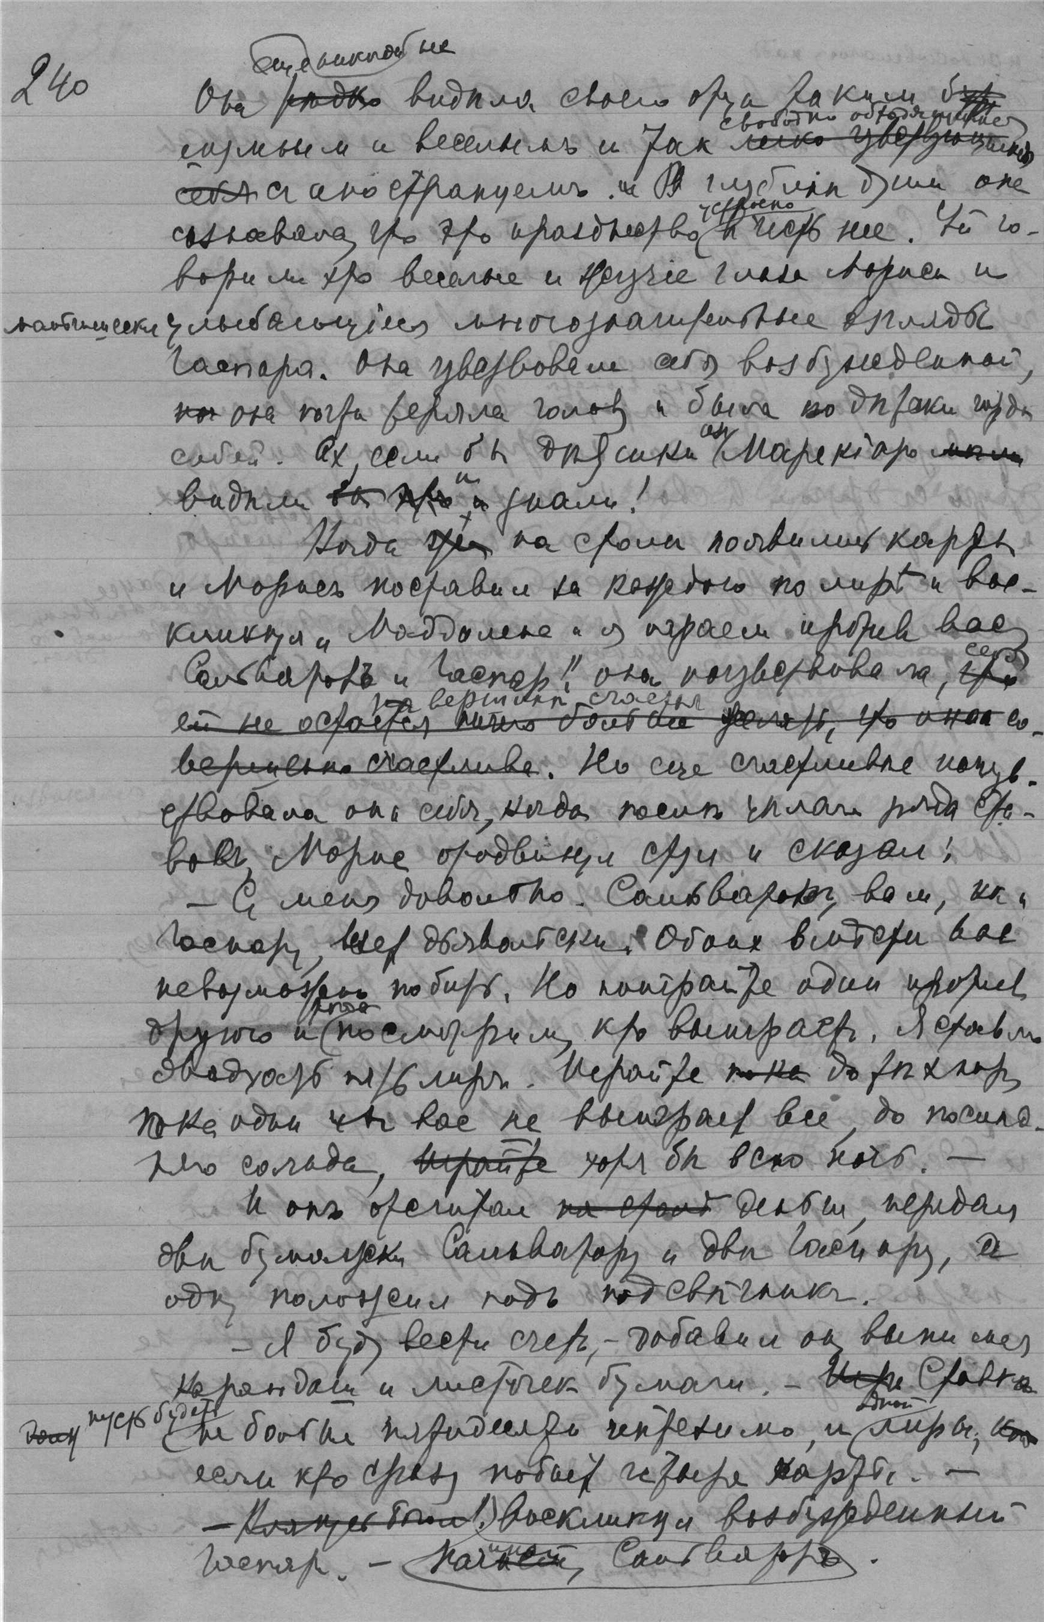 240
еще никогда не
Она редко видела своего отца таким
свободно обходящимся
шумным и веселым и так легко чувствующим
себя с иностранцем. и В глубине души она
устроено
сознавала, что это празднество в честь нее. Ей го-
ворили это веселые и жгучие глаза Мориса и
улыбающиеся многозначительные взгляды
Гаспара. Она чувствовала себя возбужденной,
она почти теряла голову и была по детски горда
собой. Ах, если бы Марекиаро могли
видеть и знали!
Когда на столе появились карты
и Морис поставил за каждого по лире и вос-
кликнул „Маддалена и я играем против вас,
Сальватор и Гаспар!" она почувствовала, что
на вершине счастья
ей не остается ничего больше желать, что она со-
вершенно счастлива. Но еще счастливее почув-
ствовала она себя, когда после
Морис отодвинул стул и сказал:
— С меня довольно. Сальватор, вам, как и
Гаспару, везет дьявольски. Обоих вместе вас
невозможно побить. Но поиграйте один против
другого и посмотрим, кто выиграет. Я ставлю
двадцать пять лир. Играйте пока до тех пор,
пока один из вас не выиграет все, до послед-
него сольдо, играйте хотя бы всю ночь. —
И он отсчитал на столе деньги, передал
две бумажки Сальватору и две Гаспару, а
одну положил под подсвечник.
— Я буду вести счет, — добавил он, вынимая
карандаш и листочек бумаги. — Ставка
пусть будет
не больше пятидесяти чентезимо, и лиры,
если кто сразу побьет четыре карты. —
— воскликнул возбужденный
Гаспар. — Начинай, Сальватор.